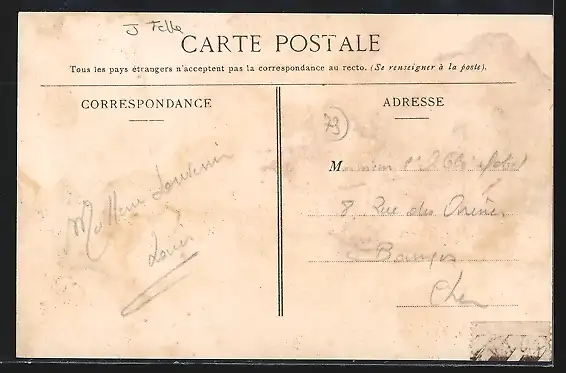 CARTE POSTALE
Tous les pays étrangers n'acceptent pas la correspondance au recto. (Se renseigner à la poste).
CORRESPONDANCE
ADRESSE
79
Meilleur Souvenir
Louis
Monsieur l'
8 Rue des
Bourges
Cher